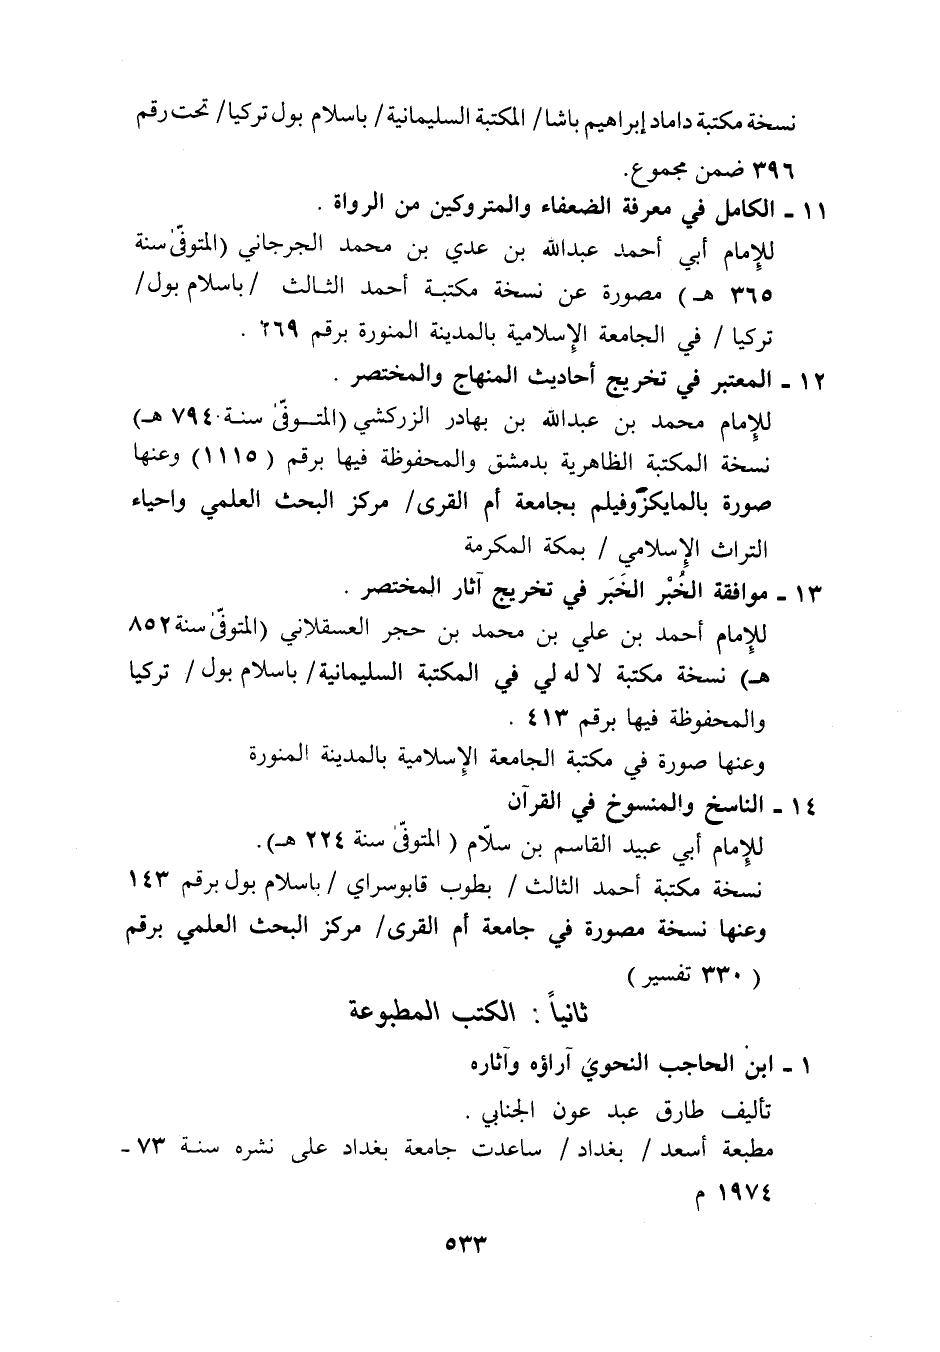 نسخة مكتبة داماد إبراهيم باشا/ المكتبة السليمانية/ باسلام بول تركيا/ تحت رقم
٣٩٦ ضمن مجموع.
١١ ـ الكامل في معرفة الضعفاء والمتروكين من الرواة .
للإمام أبي أحمد عبدالله بن عدي بن محمد الجرجاني (المتوفّىٰ سنة
٣٦٥ هـ) مصورة عن نسخة مكتبة أحمد الثالث /باسلام بول/
تركيا / في الجامعة الإسلامية بالمدينة المنورة برقم ٢٦٩ .
١٢ ـ المعتبر في تخريج أحاديث المنهاج والمختصر .
للإمام محمد بن عبدالله بن بهادر الزركشي (المتوفّىٰ سنة ٧٩٤ هـ)
نسخة المكتبة الظاهرية بدمشق والمحفوظة فيها برقم (١١١٥) وعنها
صورة بالمايكروفيلم بجامعة أم القرى/ مركز البحث العلمي واحياء
التراث الإسلامي / بمكة المكرمة
١٣ ـ موافقة الخُبْر الخَبَر في تخريج آثار المختصر .
للإمام أحمد بن علي بن محمد بن حجر العسقلاني (المتوفّىٰ سنة ٨٥٢
هـ) نسخة مكتبة لا له لي في المكتبة السليمانية/ باسلام بول/ تركيا
والمحفوظة فيها برقم ٤١٣ .
وعنها صورة في مكتبة الجامعة الإسلامية بالمدينة المنورة
١٤ ـ الناسخ والمنسوخ في القرآن
للإمام أبي عبيد القاسم بن سلّام ( المتوفّىٰ سنة ٢٢٤ هـ).
نسخة مكتبة أحمد الثالث / بطوب قابوسراي /باسلام بول برقم ١٤٣
وعنها نسخة مصورة في جامعة أم القرى/ مركز البحث العلمي برقم
( ٣٣٠ تفسير )
ثانياً : الكتب المطبوعة
١ ـ ابن الحاجب النحوي آراؤه وآثاره
تأليف طارق عبد عون الجنابي .
مطبعة أسعد / بغداد/ ساعدت جامعة بغداد على نشره سنة ٧٣ ـ
١٩٧٤ م
٥٣٣